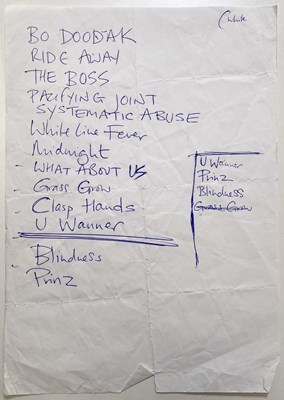 BO DOODAK
RIDE AWAY
THE BOSS
PACIFYING JOINT
SYSTEMATIC ABUSE
White Line Fever
Midnight
- WHAT ABOUT US
- Grass Grow
- Clasp Hands
U Wanner
- Blindness
- Prinz
U Wanner
Prinz
Blindness
Grass Grow